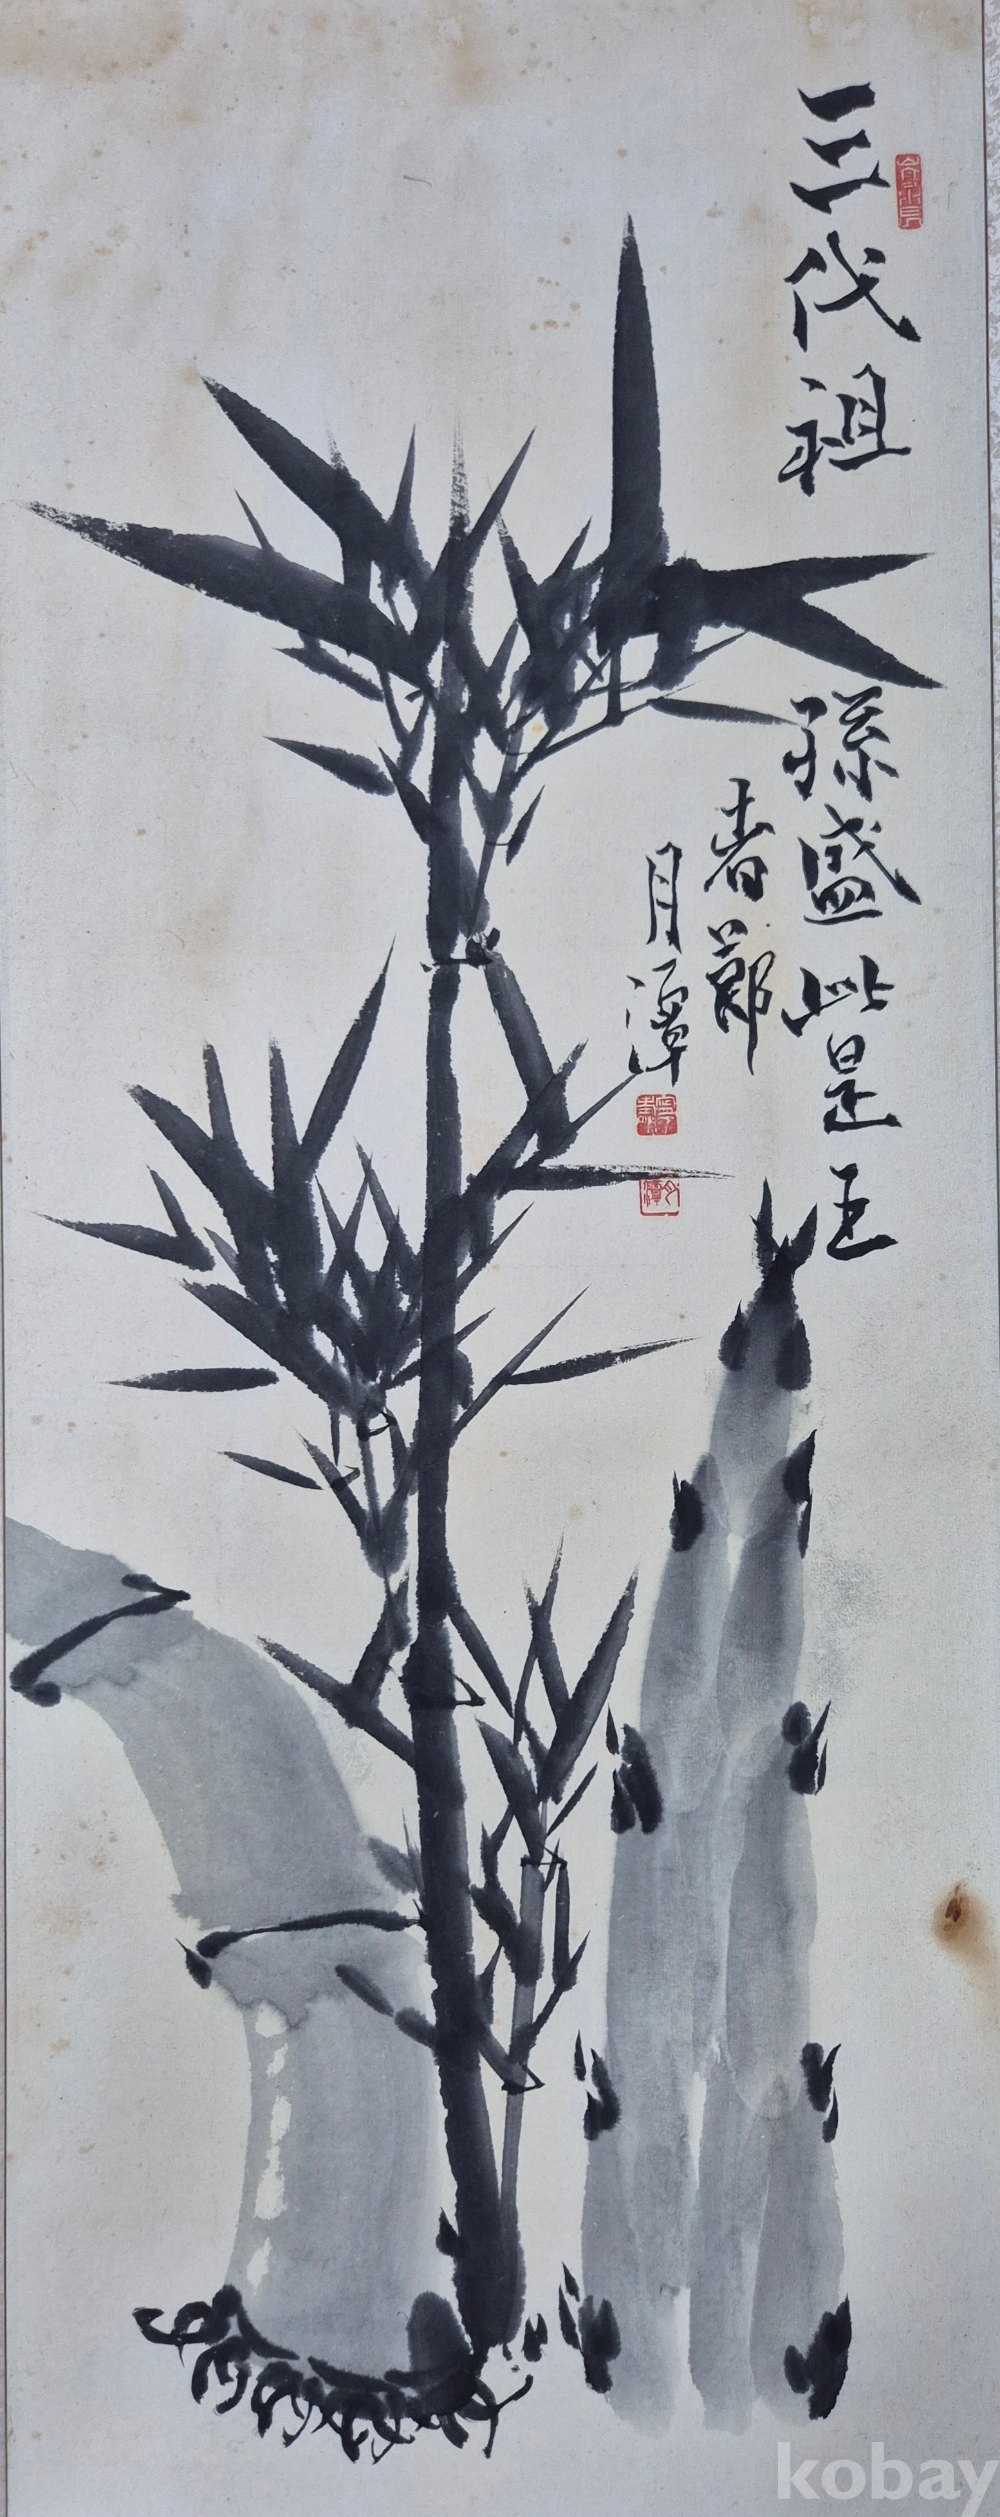 三代祖孫盛此是王
者節
月潭
月潭
kobay